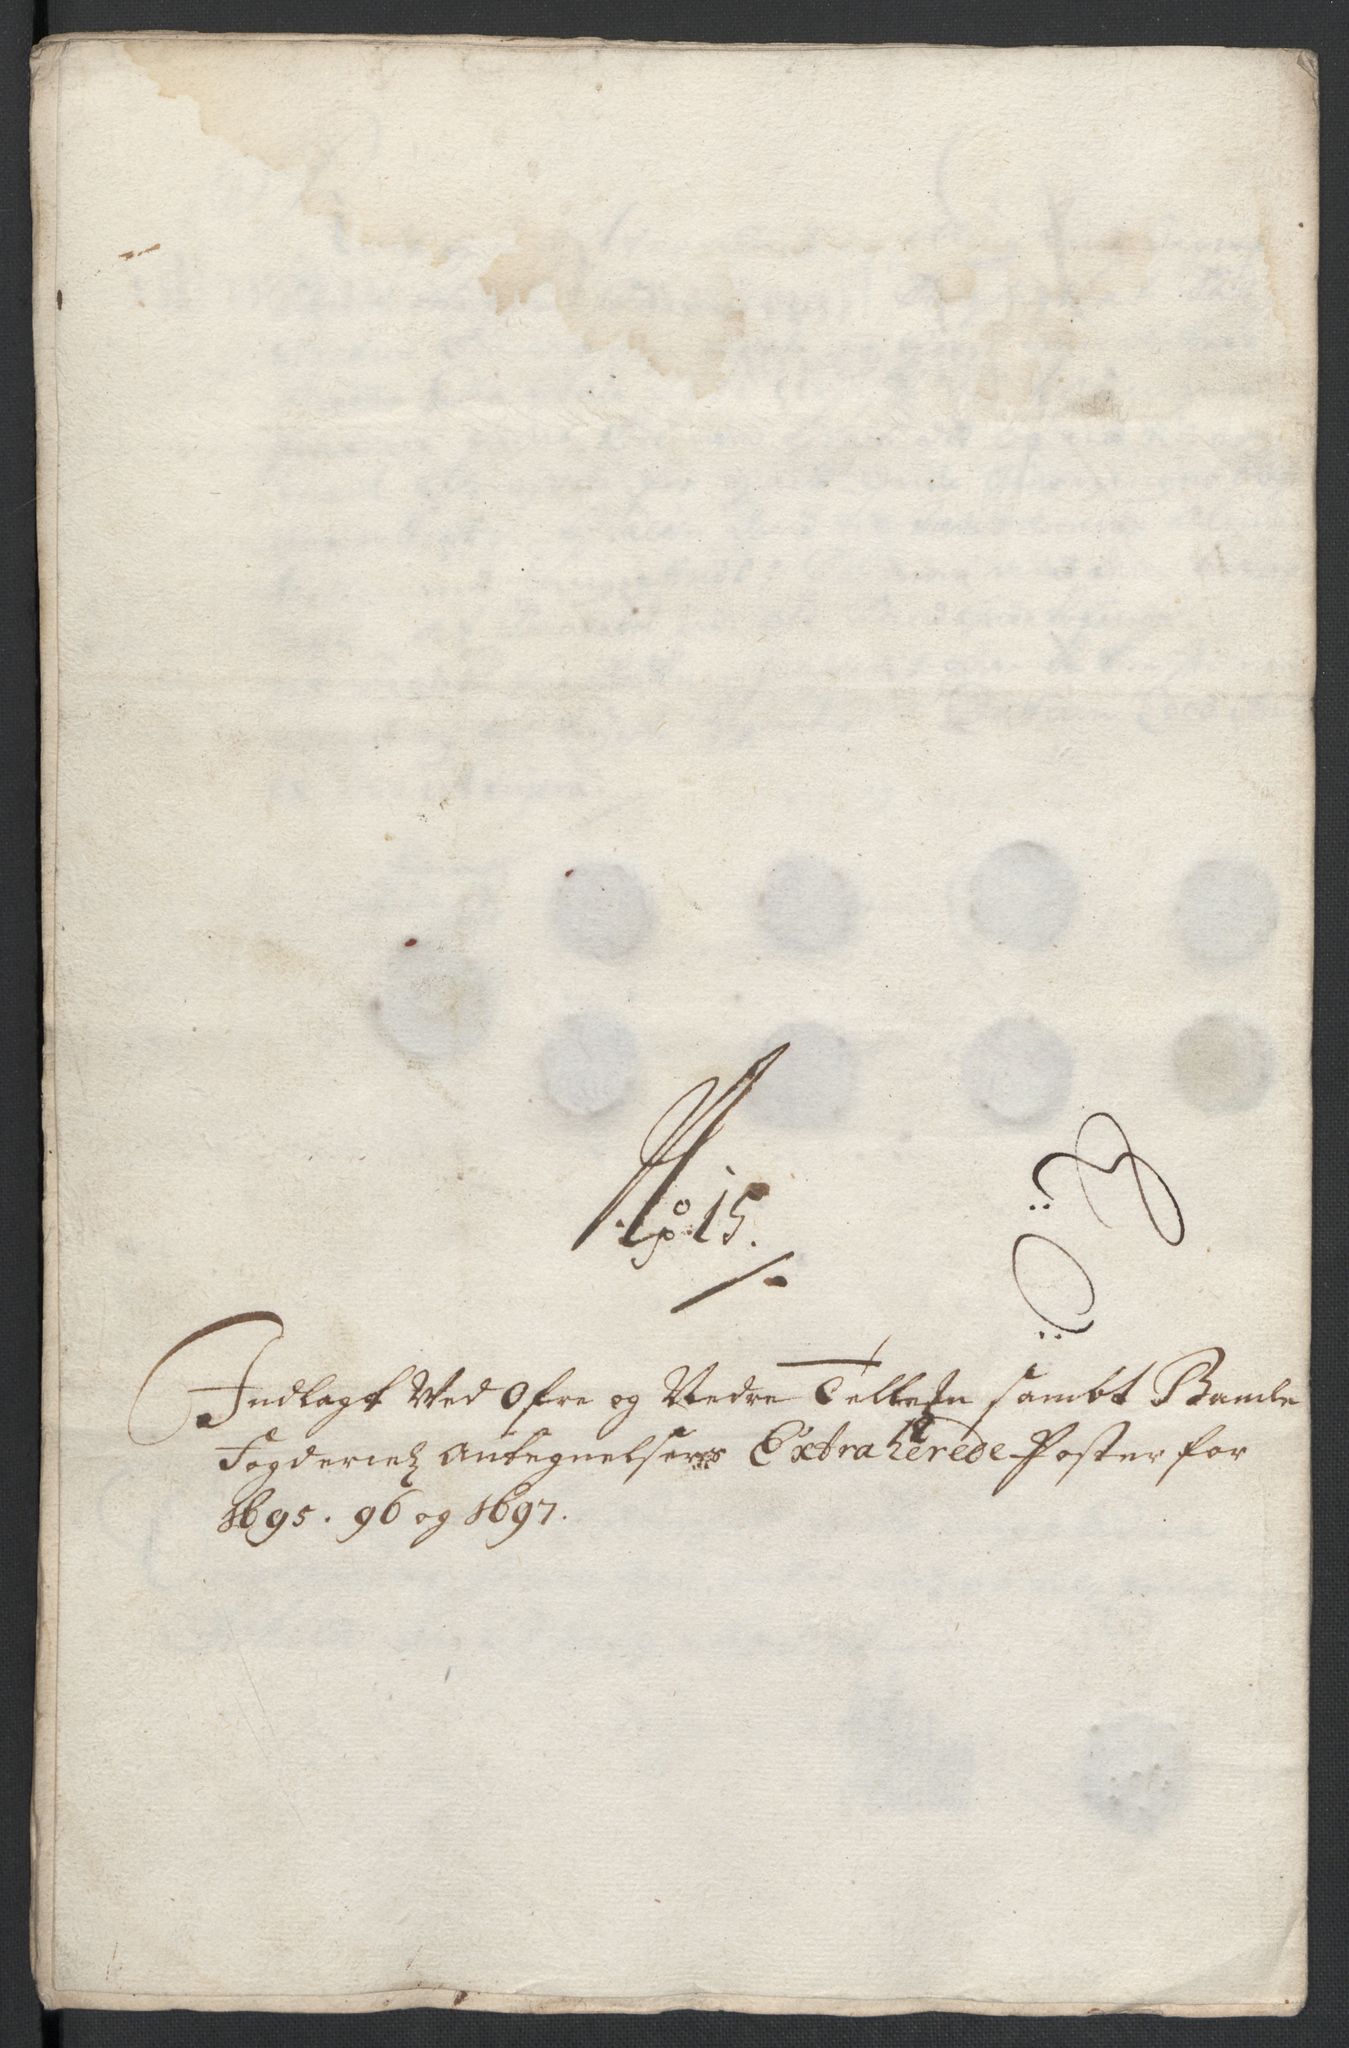 No 15.
Indlagt Ved Øfre og Nedre Tellem: sambt Bamle
Fogderietz Antegnelsers Extraherede Poster for
1695. 96 og 1697.